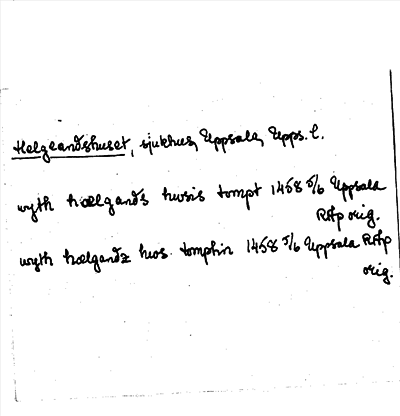 Helgeandshuset, sjukhus, Uppsala, Upps. l.
wyth hælgands hwsis tompt 1458 5/6 Uppsala
RAp orig.
wyth hælgandz hws tomptin 1458 5/6 Uppsala RAp
orig.